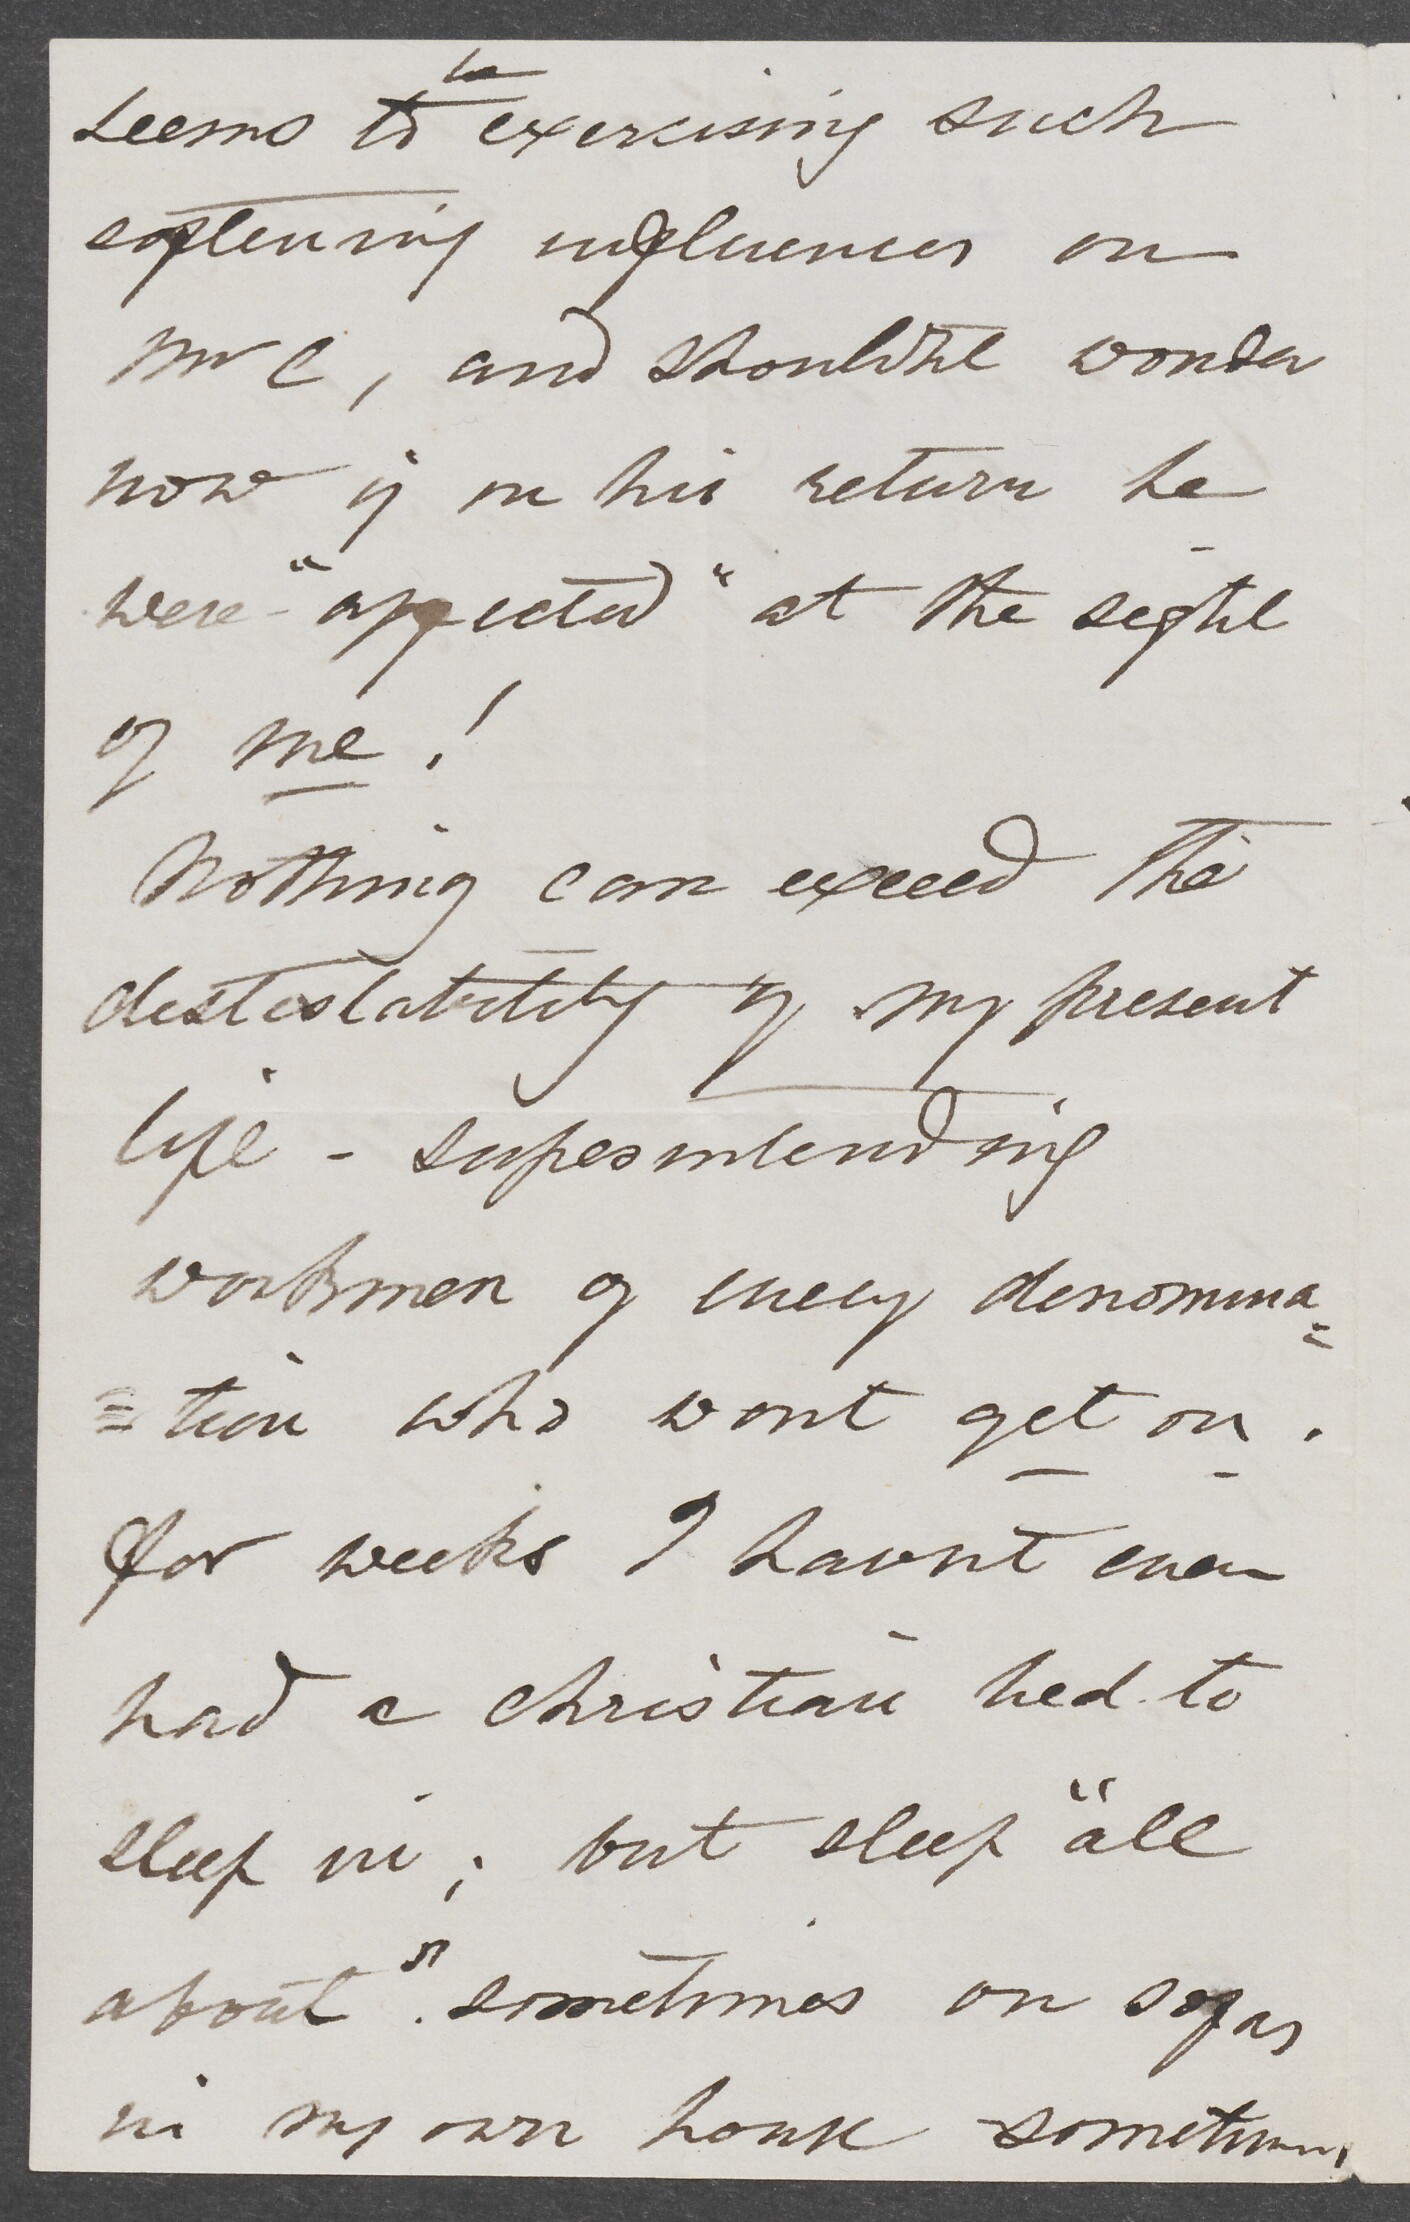 be
seems to exercising such
softening influences on
Mr C, and shouldn't wonder
now if on his return he
were "affected" at the sight
of me!
Nothing can exceed the
destestability of my present
life - superintending
workmen of every denomina=
=tion who wont get on.
for weeks I havnt even
had a christian bed to
sleep in; but sleep "all
about". sometimes on sofas
in my own house sometimes